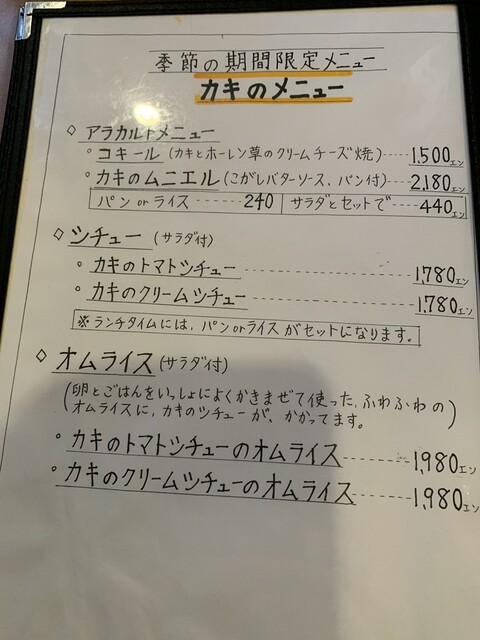 季節の期間限定メニュー
カキのメニュー
◇ アラカルトメニュー
・コキール (カキとホーレン草のクリームチーズ焼)-----1,500エン
・カキのムニエル (こがしバターソース、パン付)----2,180エン
パン or ライス ------240 サラダとセットで----440エン
◇ シチュー (サラダ付)
・カキのトマトシチュー ------------------1,780エン
・カキのクリームシチュー ------------------1,780エン
※ ランチタイムには、パンorライスがセットになります。
◇ オムライス (サラダ付)
(卵とごはんをいっしょによくかきまぜて使った、ふわふわの
オムライスに、カキのシチューが、かかってます。)
・カキのトマトシチューのオムライス--------1,980エン
・カキのクリームシチューのオムライス-------1,980エン